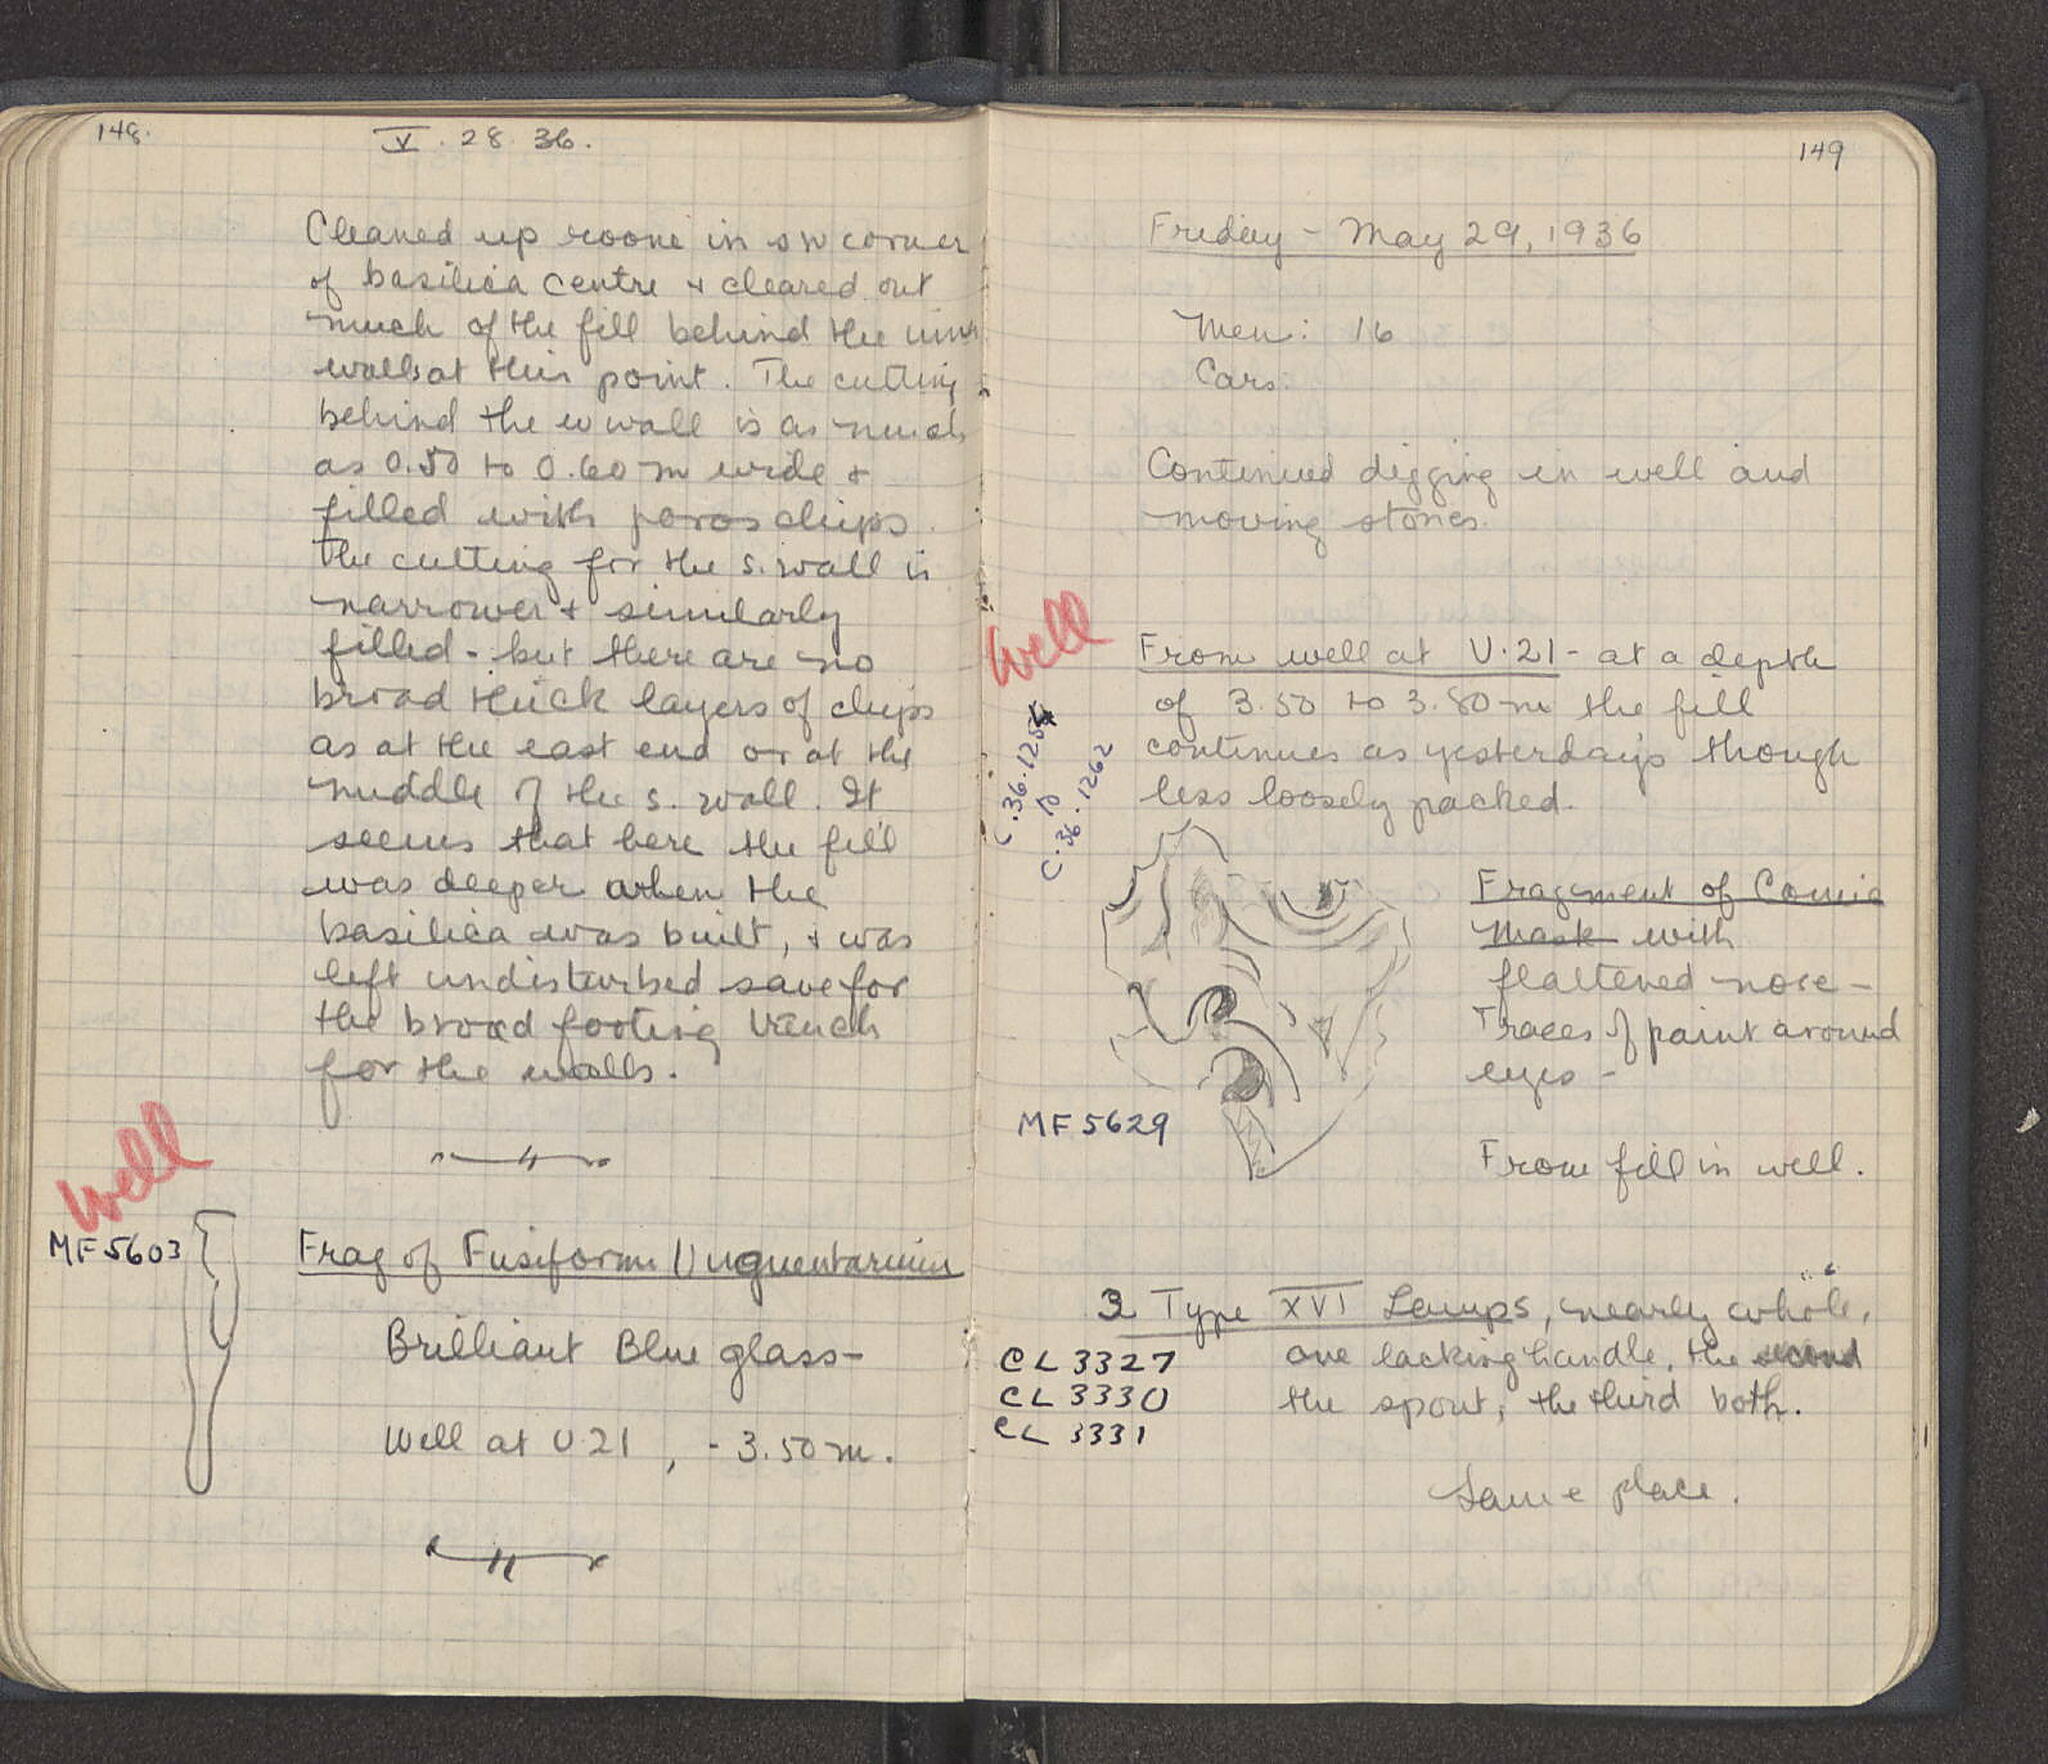 148.
V. 28 36.
Cleaned up room in SW corner
of basilica centre + cleared out
much of the fill behind the
walls at this point. The cutting
behind the W wall is as much
as 0.50 to 0.60 m wide +
filled with poros chips.
The cutting for the S. wall is
narrower + similarly
filled - but there are no
broad thick layers of chips
as at the east end or at the
middle of the S. wall. It
seems that here the fill
was deeper when the
basilica was built, + was
left undisturbed save for
the broad footing trench
for the walls.
Well
MF 5603
Frag of Fusiform Unguentarium
Brilliant Blue glass-
Well at U 21, - 3.50 m.
149
Friday - May 29, 1936
Men: 16
Cars:
Continued digging in well and
moving stones.
Well
C.36.1254
to
C.36.1262
From well at U.21 - at a depth
of 3.50 to 3.80 m the fill
continues as yesterday's though
less loosely packed.
Fragment of Comic
Mask with
flattened nose -
Traces of paint around
eyes -
MF 5629
From fill in well.
3 Type XVI Lamps, nearly whole,
one lacking handle, the second
the spout, the third both.
CL 3327
CL 3330
CL 3331
Same place.